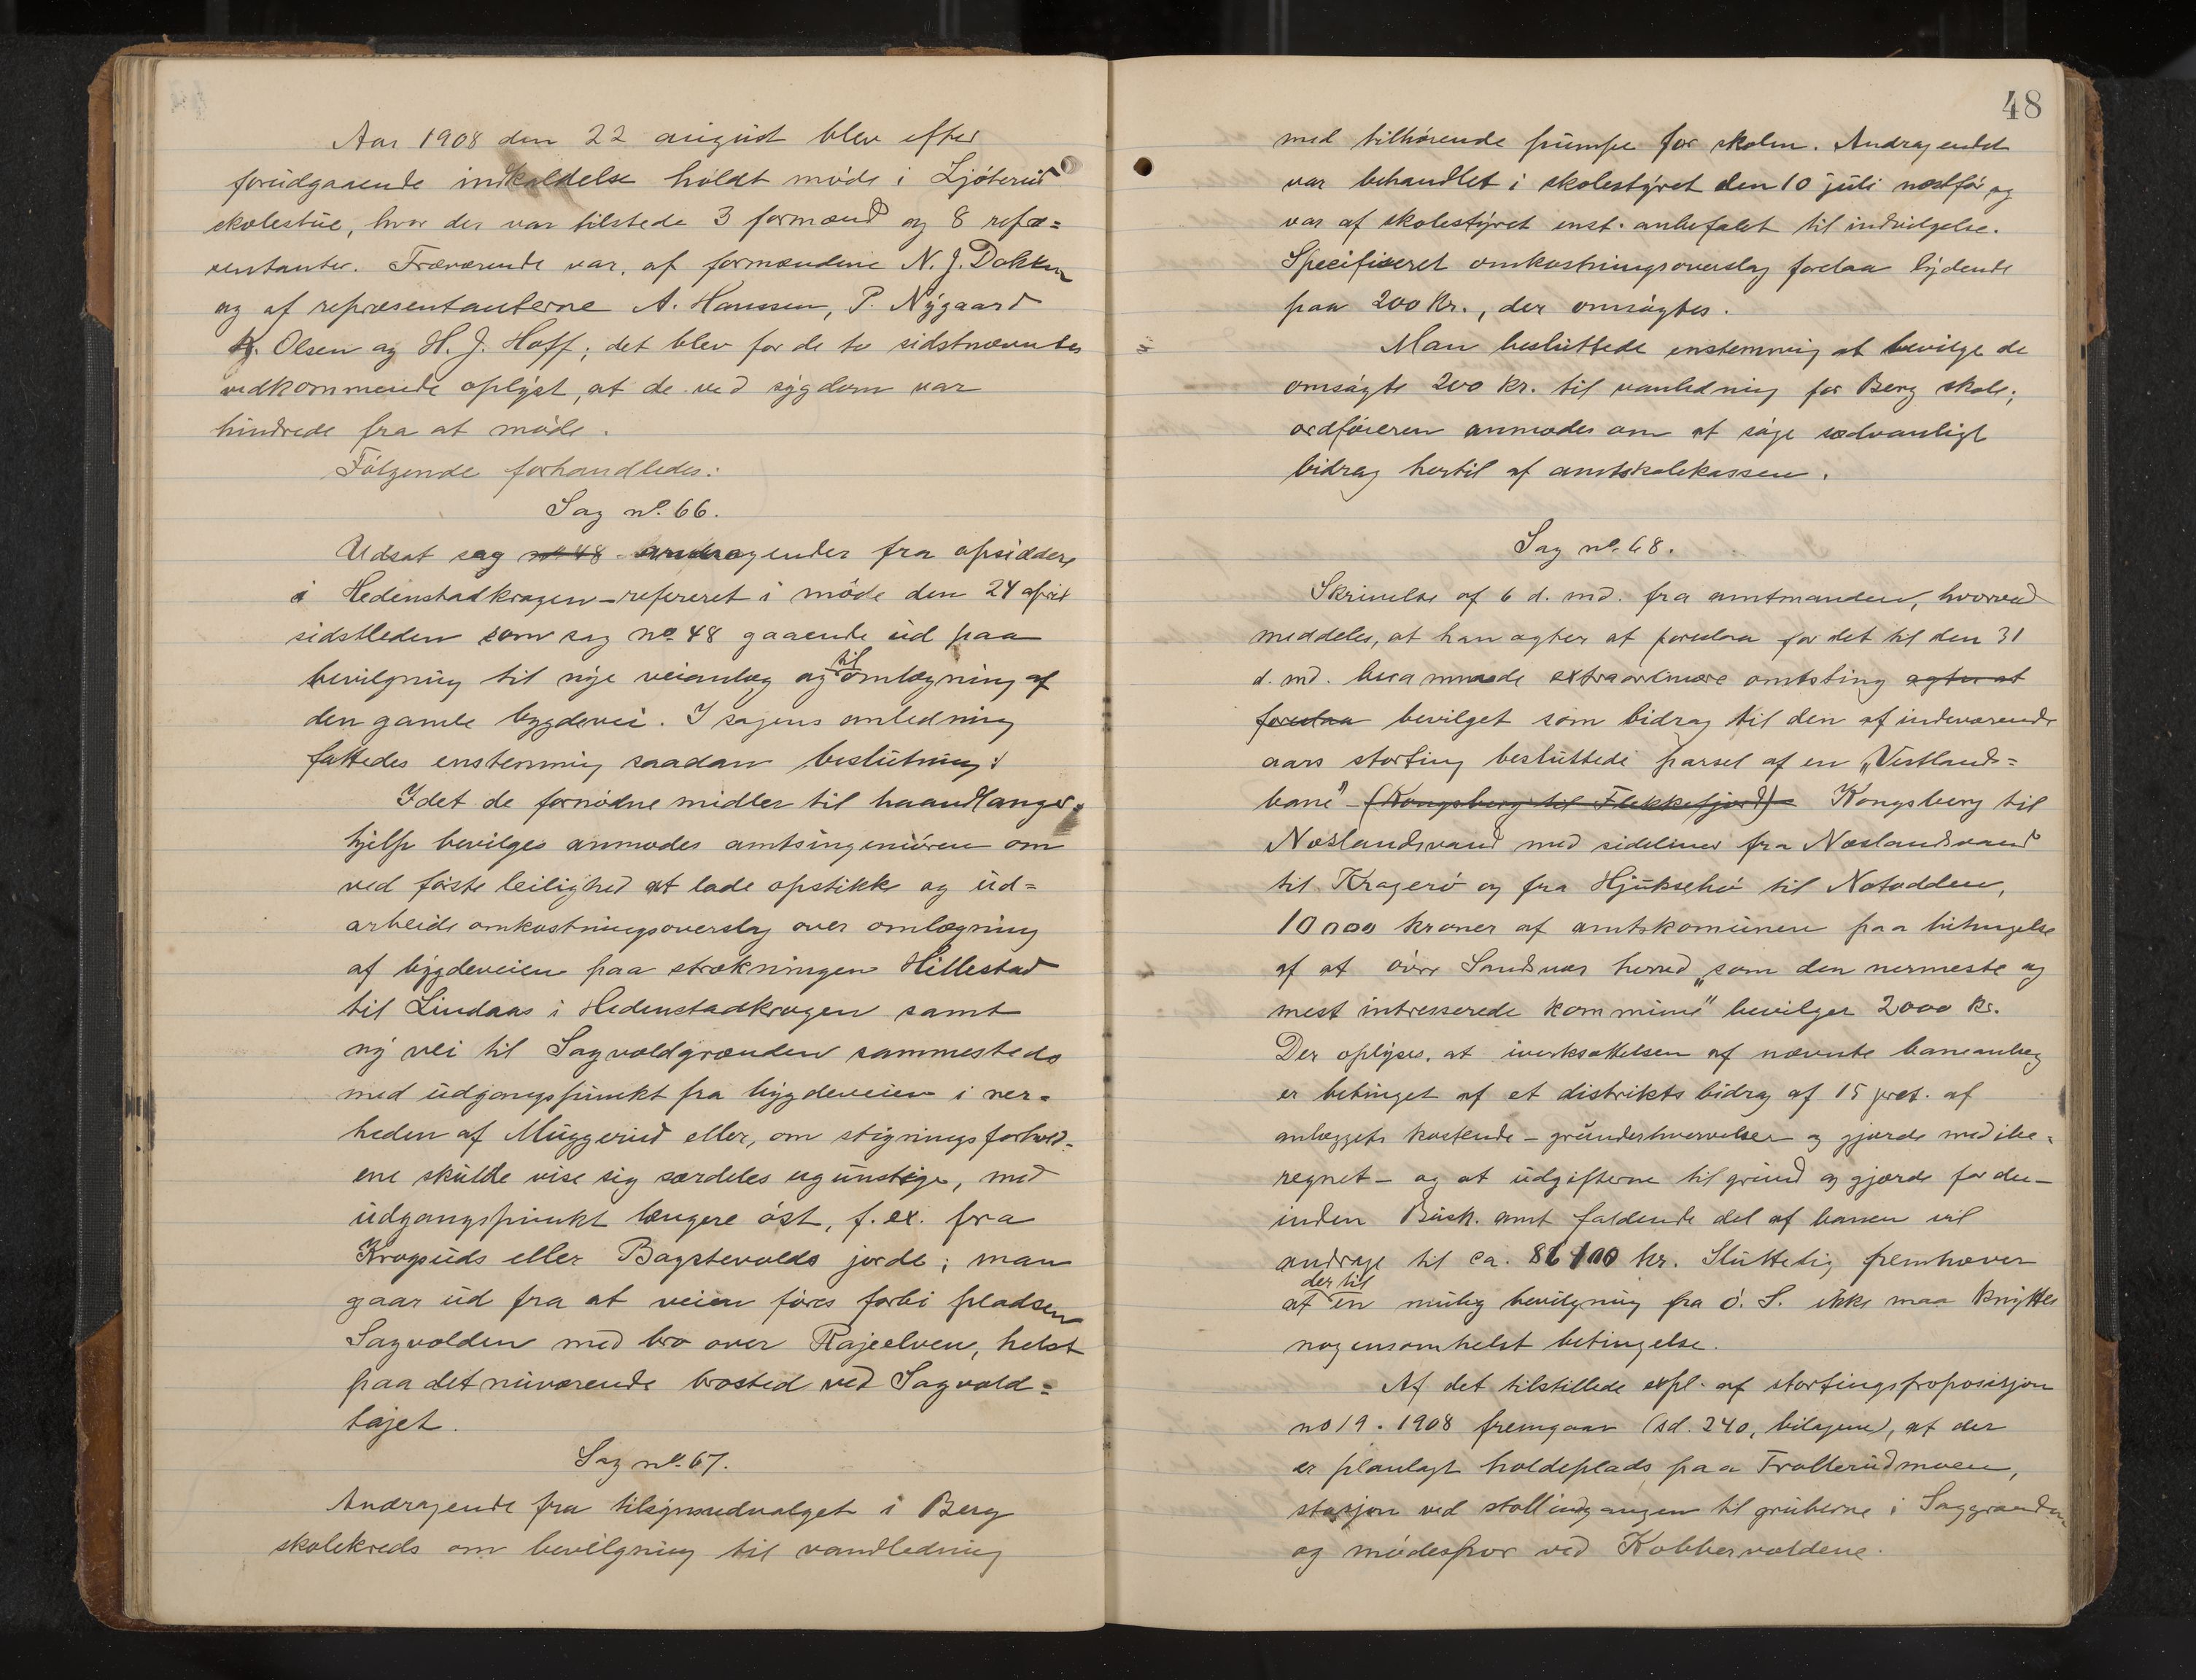 Aar 1908 den 22 august blev efter
forudgaaende indkaldelse holdt møde i Ljøterud
skolestue, hvor der var tilstede 3 formænd og 8 repræ=
sentanter. Fraværende var, af formændene N. J. Dokken
og af repræsentanterne A. Hanssen, P. Nygaard
K. Olsen og H. J. Hoff; det blev for de to sidstnævntes
vedkommende oplyst, at de ved sygdom var
hindrede fra at møde.
Følgende forhandledes:
Sag no. 66.
Udsat sag no 48 andragender fra opsiddere
i Hedenstadkragen - refereret i møde den 24 april
sidstleden som sag no. 48 gaaende ud paa
bevilgning til nye veianlæg og til omlægning af
den gamle bygdevei. I sagens anledning
fattedes enstemmig saadan beslutning:
Idet de fornødne midler til haandlanger=
hjelp bevilges anmodes amtsingeniøren om
ved første leilighed at lade opstikke og ud=
arbeide omkostningsoverslag over omlægning
af bygdeveien paa strækningen Hillestad
til Lindaas i Hedenstadkragen samt
ny vei til Sagvoldgrænden sammesteds
med udgangspunkt fra bygdeveien i nær=
heden af Muggerud eller, om stigningsforhold=
ene skulde vise sig særdeles ugunstige, med
udgangspunkt længere øst, f. ex. fra
eller Bagstevolds jorde; man
gaar ud fra at veien føres forbi pladsen
Sagvolden med bro over Rajeelven, helst
paa det nuværende brosted ved Sagvold=
tajet.
Sag no. 67.
Andragende fra tilsynsudvalget i Berg
skolekreds om bevilgning til vandledning
48
med tilhørende pumpe for skolen. Andragendet
var behandlet i skolestyret den 10 juli næstfør og
var af skolestyret enst. anbefalet til indvilgelse.
Specifiseret omkostningsoverslag forelaa lydende
paa 200 Kr., der omsøgtes.
Man besluttede enstemmig at bevilge de
omsøgte 200 kr. til vanledning for Berg skole;
ordføreren anmodes om at søge sædvanligt
bidrag hertil af amtskolekassen.
Sag no. 68.
Skrivelse af 6 d. md. fra amtmanden, hvorved
meddeles, at han agter at foreslaa for det til den 31
d. md. berammede extraordinære amtsting agter at
foreslaa bevilget som bidrag til den af indeværende
aars storting besluttede parsel af en „Vestlands=
bane" - (Kongsberg til Flekkefjord) - Kongsberg til
Næslandsvand med sidelinier fra Næslandsvand
til Kragerø og fra Hjuksebø til Notodden,
10000 kroner af amtskomunen paa betingelse
af at øvre Sandsvær herred „som den nærmeste og
mest intresserede kommune" bevilger 2000 kr.
Der oplyses, at iverksættelsen af nævnte baneanlæg
er betinget af et distrikts bidrag af 15 prct. af
anlæggets kostende - grunderhvervelser og gjærde medibe=
regnet - og at udgifterne til grund og gjærde for den
inden Busk. amt faldende del af banen vil
andrage til ca. kr. Sluttelig fremhæver
at der til en mulig bevilgning fra ø. S. ikke maa knyttes
nogensomhelst betingelse.
Af det tilstillede expl. af stortingsproposisjon
no 19. 1908 fremgaar (sd. 240, bilagene), at der
er planlagt holdeplads paa Trollerudmoen,
stasjon ved stollindgangen til gruberne i Saggrænden
og mødespor ved Kobbervoldene.